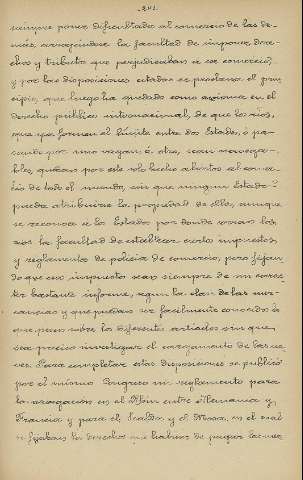 201
siempre poner dificultades al comercio de las de-
más, arrogándose la facultad de imponer dere-
chos y tributos que perjudicaban a ese comercio,
y por las disposiciones citadas se proclamó el prin-
cipio, que luego ha quedado como axioma en el
derecho público internacional, de que los ríos,
que ya formen el límite entre dos Estados, ó pa-
sando por uno vayan á otro, sean navega-
bles, quedan por este solo hecho abiertos al comer-
cio de todo el mundo, sin que ningún Estado
pueda atribuirse la propiedad de ellos, aunque
se reconoce a los Estados por donde corran los
ríos la facultad de establecer ciertos impuestos
y reglamentos de policía de comercio, pero fijan-
do que ese impuesto sea siempre de un carác-
ter bastante uniforme, según la clase de las mer-
cancías y que puedan ser fácilmente conocidos
que pesen sobre los diferentes artículos sin que
sea preciso investigar el cargamento de las na-
ves. Para completar estas disposiciones se publicó
por el mismo Congreso un reglamento para
la navegación en el Rhin entre Alemania y
Francia y para el Escalda y el Mosa, en el cual
se fijaban los derechos que habían de pagar las mer-